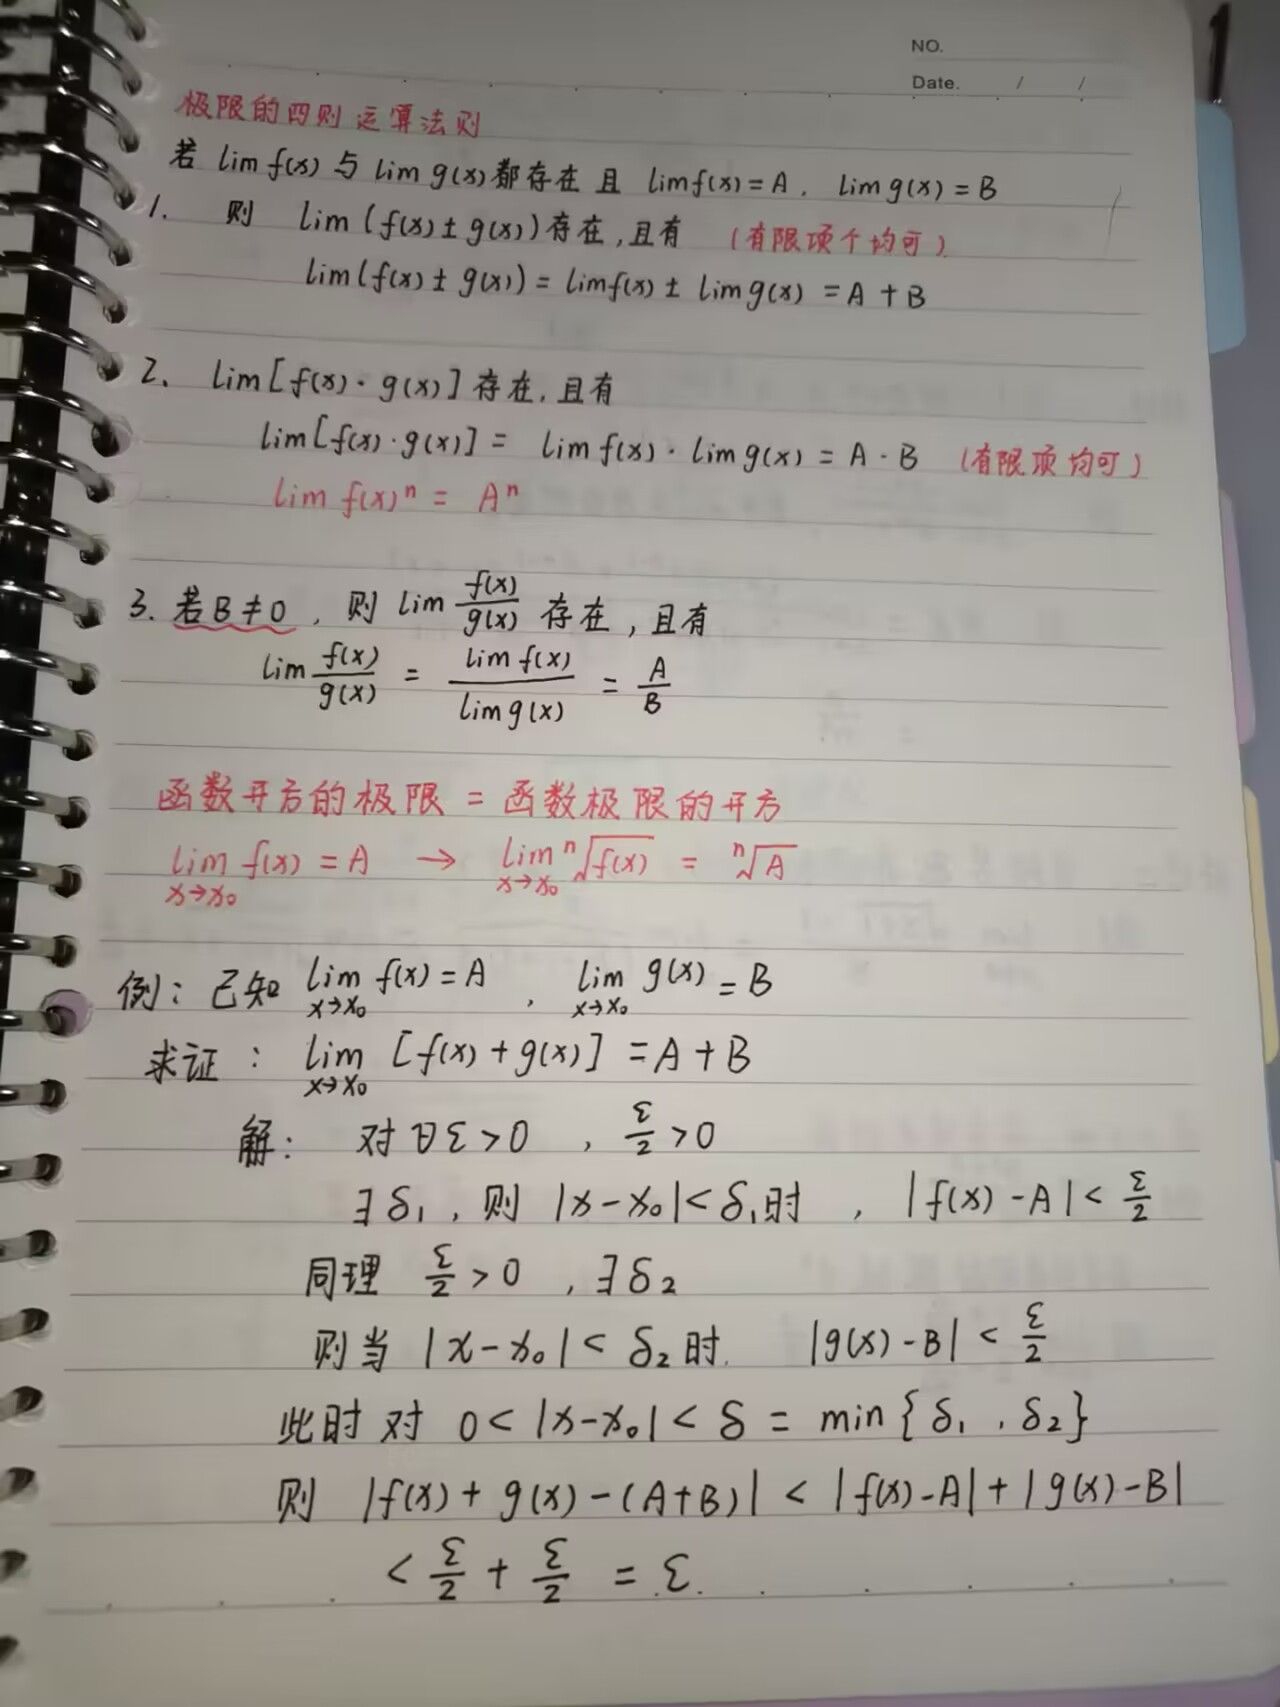 NO.
Date. / /
极限的四则运算法则
若 lim f(x) 与 lim g(x) 都存在 且 lim f(x) = A. lim g(x) = B
1. 则 lim (f(x) ± g(x)) 存在,且有 (有限项个均可)
lim(f(x) ± g(x)) = lim f(x) ± lim g(x) = A + B
2. lim [f(x) · g(x)] 存在,且有
lim [f(x) · g(x)] = lim f(x) · lim g(x) = A · B (有限项均可)
lim f(x)ⁿ = Aⁿ
3. 若 B ≠ 0, 则 lim f(x)/g(x) 存在, 且有
lim f(x)/g(x) = lim f(x)/lim g(x) = A/B
函数开方的极限 = 函数极限的开方
lim x→x₀ f(x) = A → lim x→x₀ ⁿ√f(x) = ⁿ√A
例: 已知 lim x→x₀ f(x) = A , lim x→x₀ g(x) = B
求证: lim x→x₀ [f(x) + g(x)] = A + B
解: 对 ∀ ε > 0 , ε/2 > 0
∃ δ₁, 则 |x - x₀| < δ₁时 , |f(x) - A| < ε/2
同理 ε/2 > 0 , ∃ δ₂
则当 |x - x₀| < δ₂ 时. |g(x) - B| < ε/2
此时 对 0 < |x - x₀| < δ = min{δ₁ , δ₂}
则 |f(x) + g(x) - (A+B)| < |f(x) - A| + |g(x) - B|
< ε/2 + ε/2 = ε.